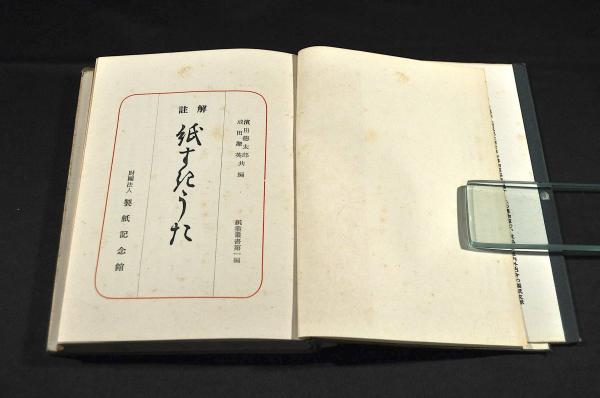 濱田德太郎
成田潔英 共編
紙業叢書第一編
註解
紙すきうた
財團法人 製紙記念館